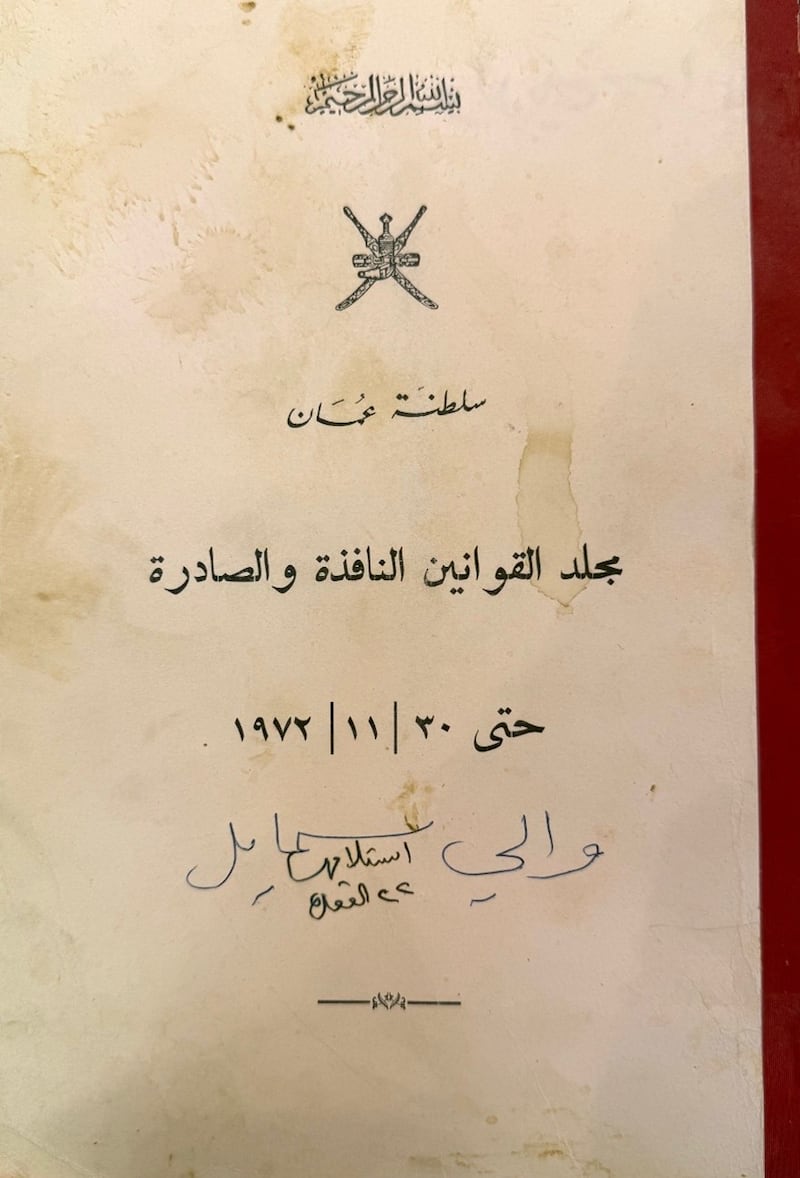 بسم الله الرحمن الرحيم
سلطنة عُمَان
مجلد القوانين النافذة والصادرة
حتى ٣٠ | ١١ | ١٩٧٢
والي سمايل
استلام
٢٢ القعدة